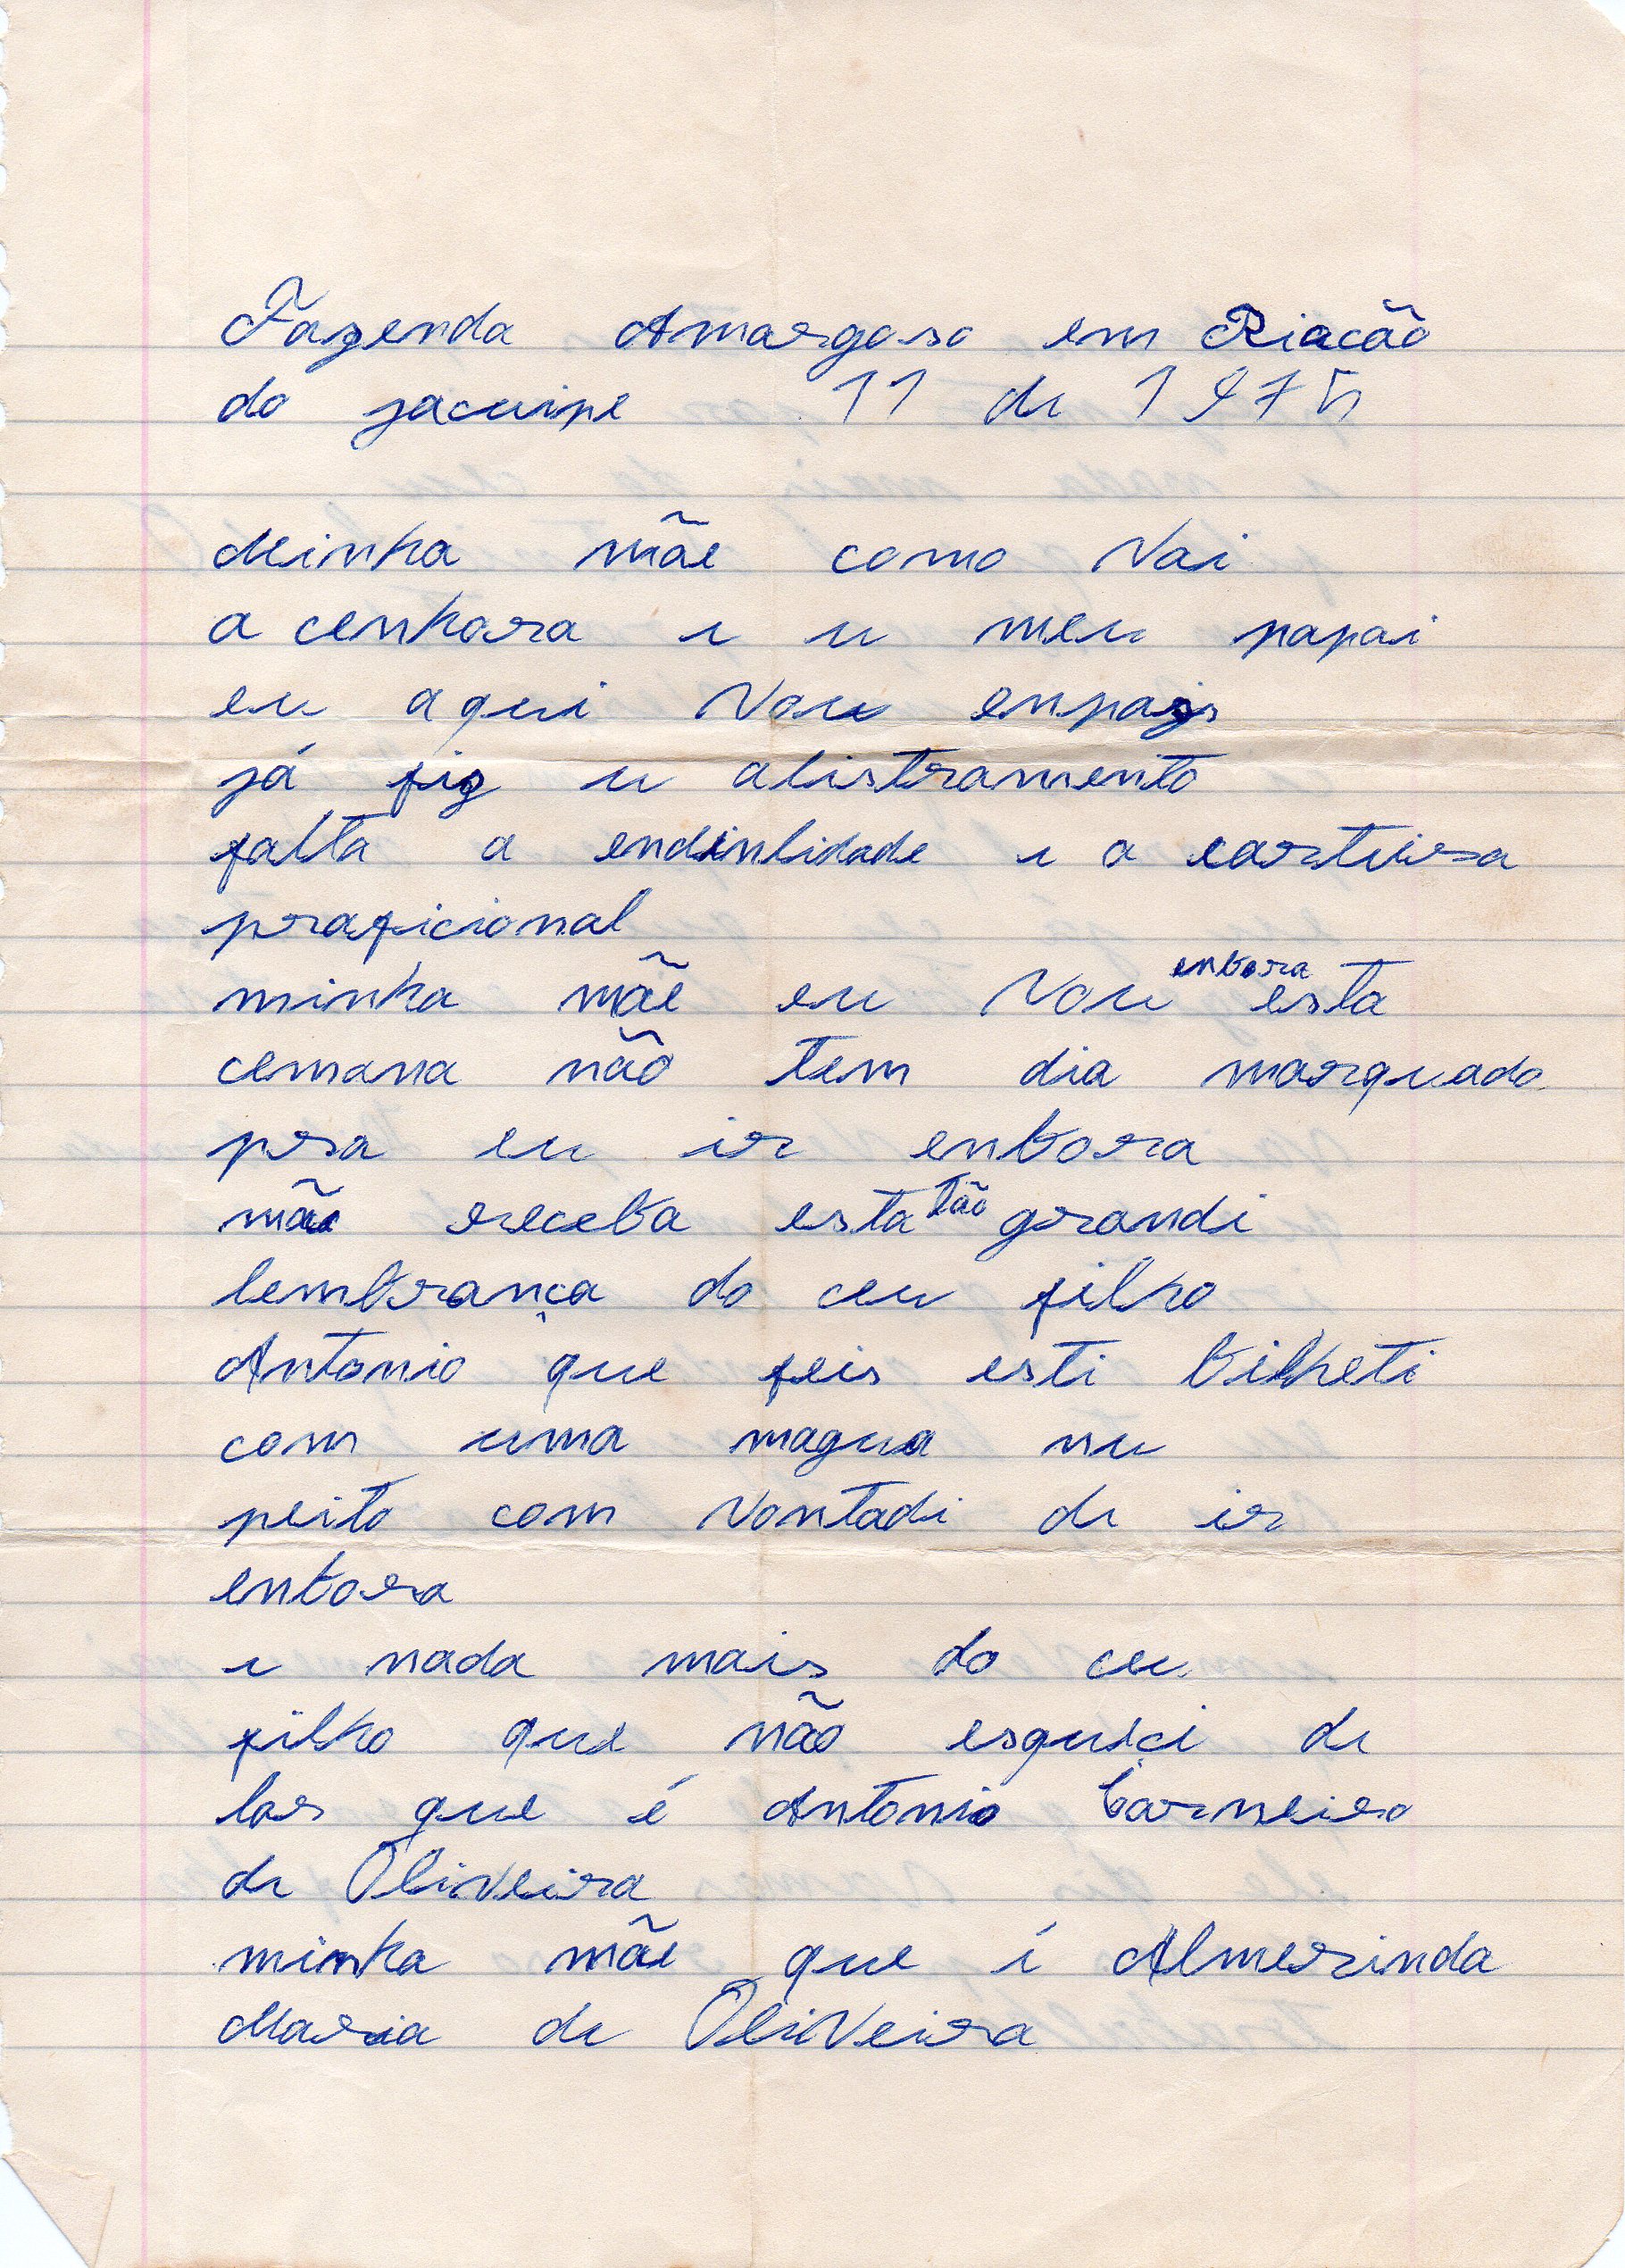 Fazenda Amargoso em Riacão
do jacuipe 11 de 1975
Minha mãe como Vai
a cenhora e u meu papai
eu aqui Vou enpais
já fiz u alistramento
falta a endinlidade e a carteira
praficional
minha mãe eu Vou enbora esta
cemana não tem dia marquado
pra eu ir enbora
mãe receba esta tão grandi
lembrança do ceu filho
Antonio que feis esti bilheti
com uma magua nu
peito com Vontadi de ir
enbora
e nada mais do ceu
filho que não esqueici de
las que é Antonio Carneiro
de OliVeira
minha mãe que é Almerinda
Maria de OliVeira